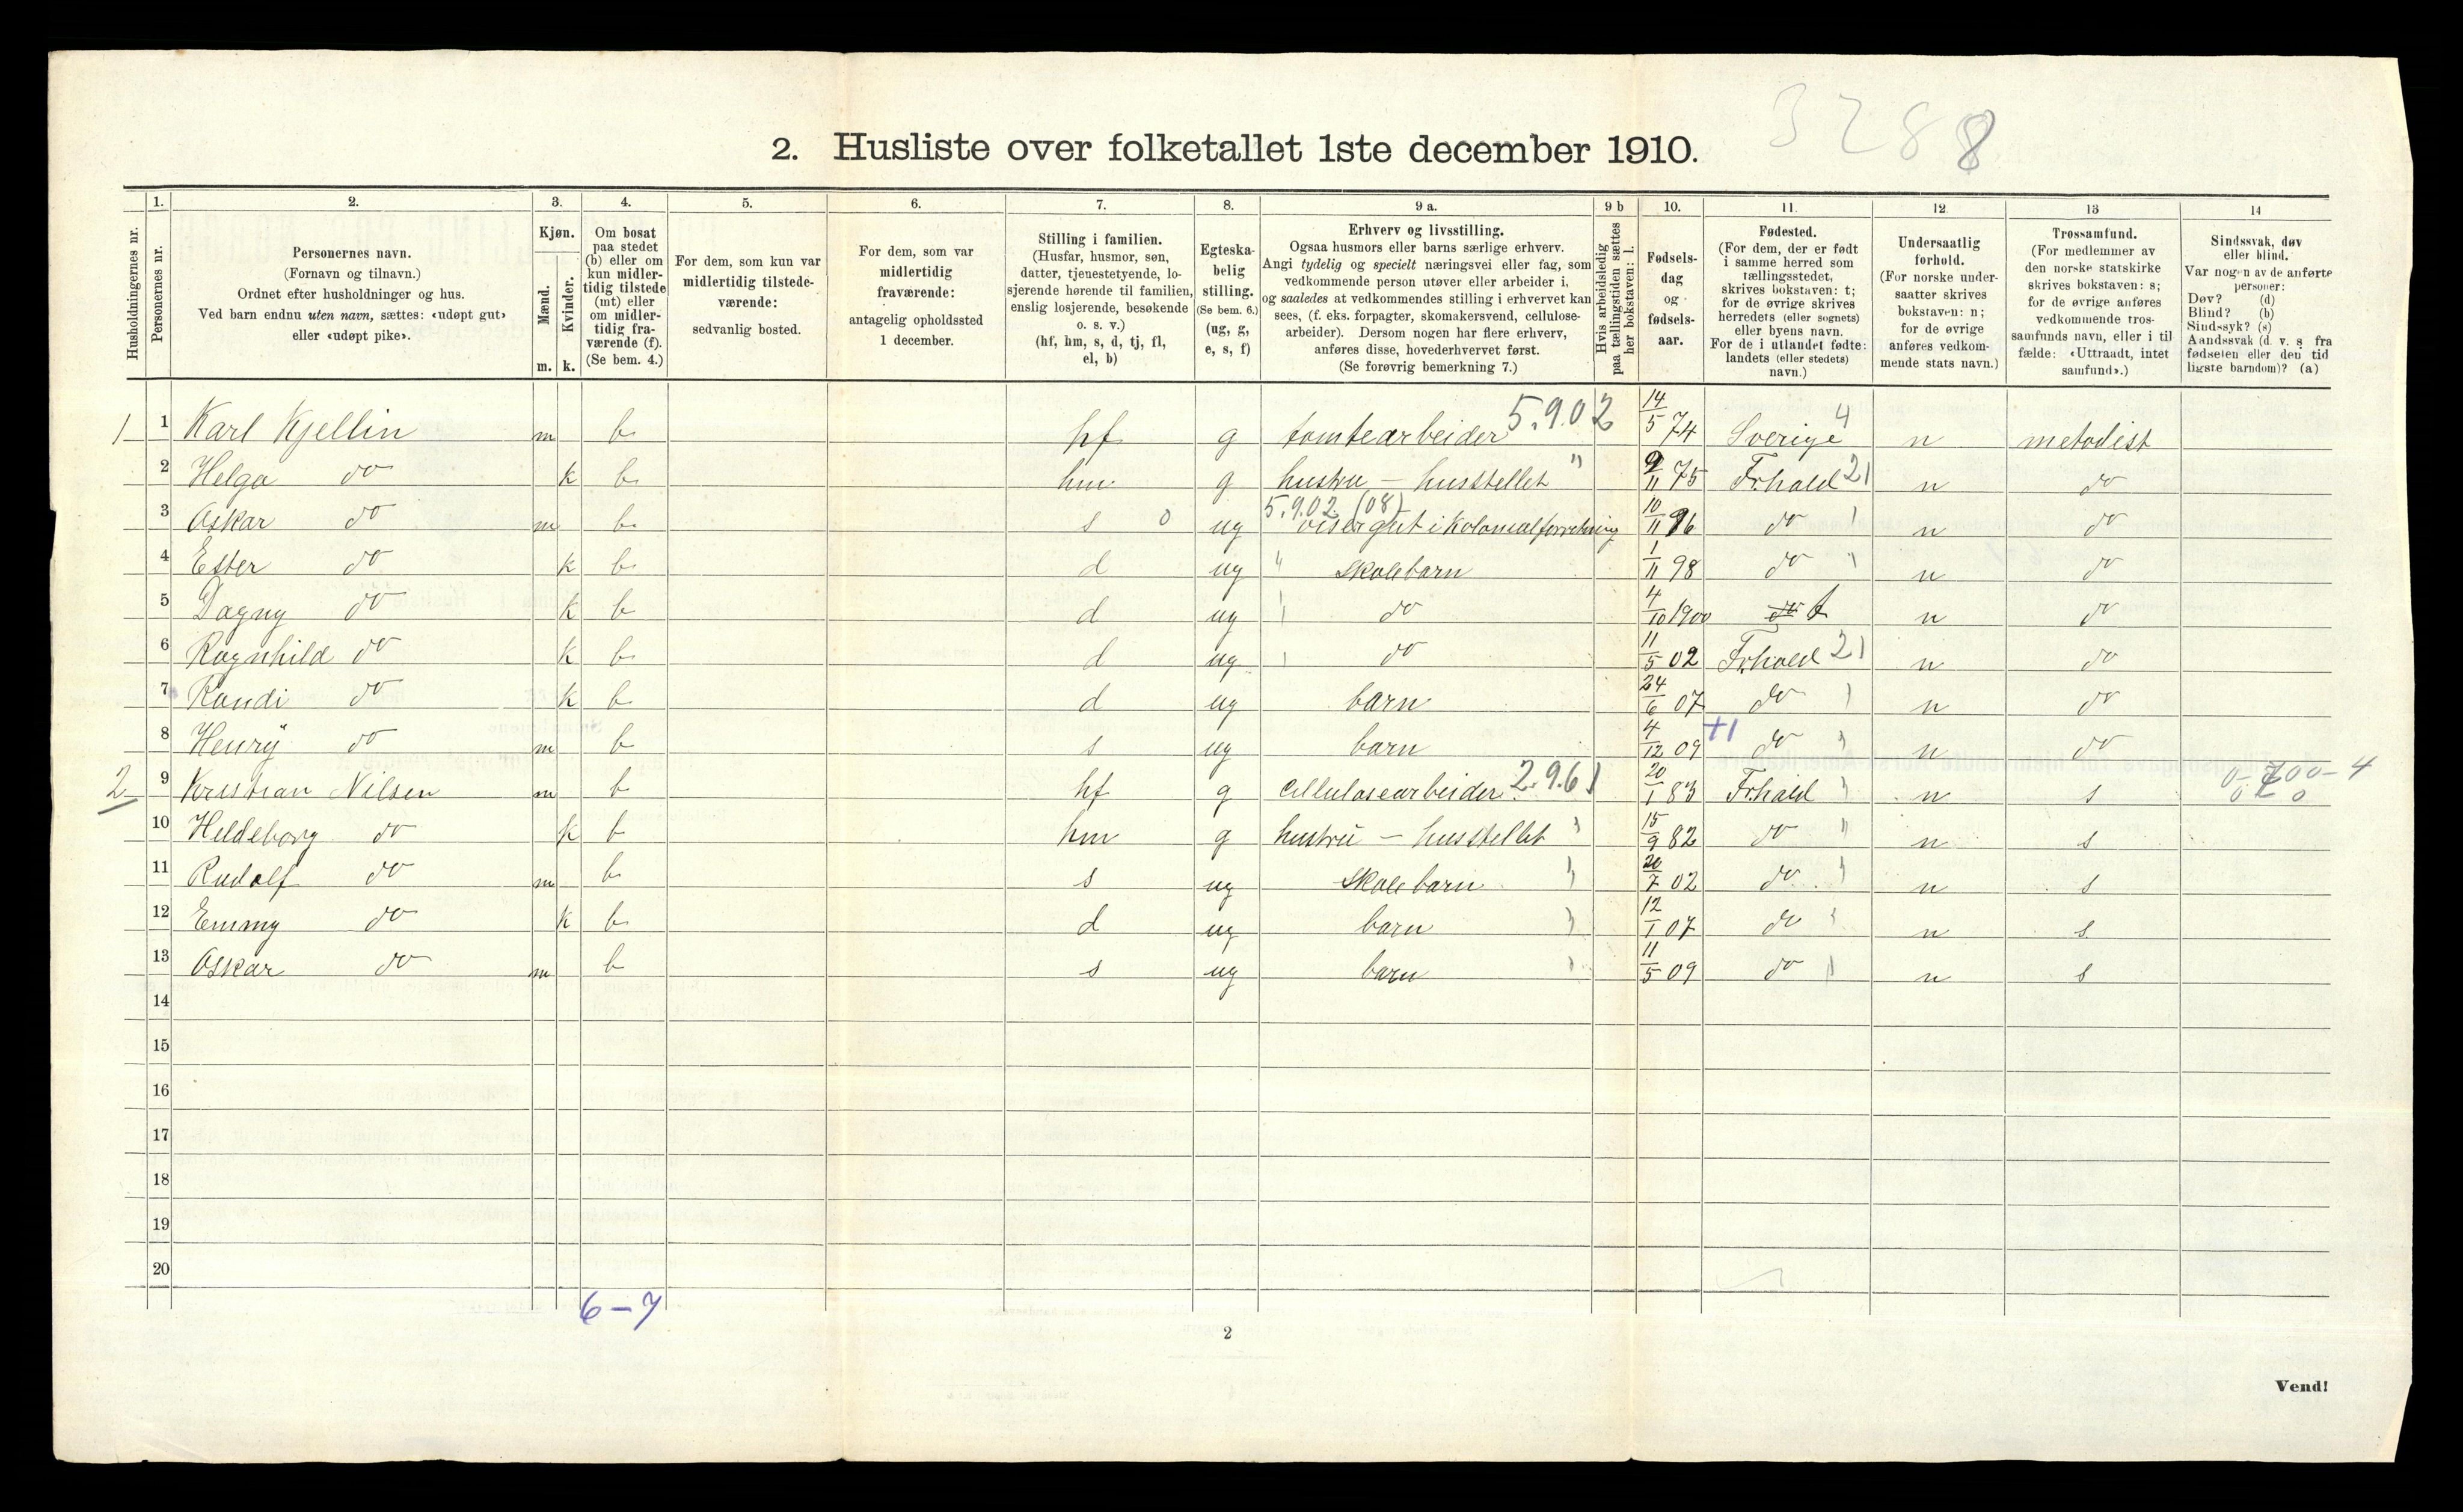 3288
2. Husliste over folketallet 1ste december 1910.
Husholdningernes nr.
1. Personernes nr.
2. Personernes navn.
(Fornavn og tilnavn.)
Ordnet efter husholdninger og hus.
Ved barn endnu uten navn, sættes: «udøpt gut»
eller «udøpt pike».
3. Kjøn.
Mænd. Kvinder.
m. k.
4. Om bosat
paa stedet
(b) eller om
kun midler-
tidig tilstede
(mt) eller
om midler-
tidig fra-
værende (f).
(Se bem. 4.)
5. For dem, som kun var
midlertidig tilstede-
værende:
sedvanlig bosted.
6. For dem, som var
midlertidig
fraværende:
antagelig opholdssted
1 december.
7. Stilling i familien.
(Husfar, husmor, søn,
datter, tjenestetyende, lo-
sjerende hørende til familien,
enslig losjerende, besøkende
o. s. v.)
(hf, hm, s, d, tj, fl,
el, b)
8. Egteska-
belig
stilling.
(Se bem. 6.)
(ug, g,
e, s, f)
9 a. Erhverv og livsstilling.
Ogsaa husmors eller barns særlige erhverv.
Angi tydelig og specielt næringsvei eller fag, som
vedkommende person utøver eller arbeider i,
og saaledes at vedkommendes stilling i erhvervet kan
sees, (f. eks. forpagter, skomakersvend, cellulose-
arbeider). Dersom nogen har flere erhverv,
anføres disse, hovederhvervet først.
(Se forøvrig bemerkning 7.)
9 b Hvis arbeidsledig
paa tællingstiden sættes
her bokstaven: l.
10. Fødsels-
dag
og
fødsels-
aar.
11. Fødested.
(For dem, der er født
i samme herred som
tællingsstedet,
skrives bokstaven: t;
for de øvrige skrives
herredets (eller sognets)
eller byens navn.
For de i utlandet fødte:
landets (eller stedets)
navn.)
12 Undersaatlig
forhold.
(For norske under-
saatter skrives
bokstaven: n;
for de øvrige
anføres vedkom-
mende stats navn.)
13 Trossamfund.
(For medlemmer av
den norske statskirke
skrives bokstaven: s;
for de øvrige anføres
vedkommende tros-
samfunds navn, eller i til
fælde: «Uttraadt, intet
samfund».)
14 Sindssvak, døv
eller blind.
Var nogen av de anførte
personer:
Døv? (d)
Blind? (b)
Sindssyk? (s)
Aandssvak (d. v. s fra
fødselen eller den tid
ligste barndom)? (a)
1 1 Karl Kjellin m b hf g tomtearbeider 5.9.02 14/5 74 Sverige 4 n metodist
2 Helga do k b hm g hustru - husstellet " 9/11 75 Frhald 21 n do
3 Oskar do m b s 0 ug 5.9.02 (08) visergut i kolonialforretning 10/11 96 do n do
4 Ester do k b d ug " skolebarn 1/11 98 do " n do
5 Dagny do k b d ug do 4/10 1900 do t n do
6 Ragnhild do k b d ug do 11/5 02 Frhald 21 n do
7 Randi do k b d ug barn 24/6 07 do n do
8 Henry do m b s ug barn 4/12 09 +1 do n do
2 9 Kristian Nilsen m b hf g Cellulosearbeider 2.9.61 20/1 83 Frhald n s
10 Heldeborg do k b hm g hustru - husstellet 15/9 82 do " n s
11 Rudolf do m b s ug Skolebarn 20/7 02 do n s
12 Emmy do k b d ug barn 12/1 07 do n s
13 Oskar do m b s ug barn 11/5 09 do n s
14
15
16
17
18
19
20
6-7
2
Vend!